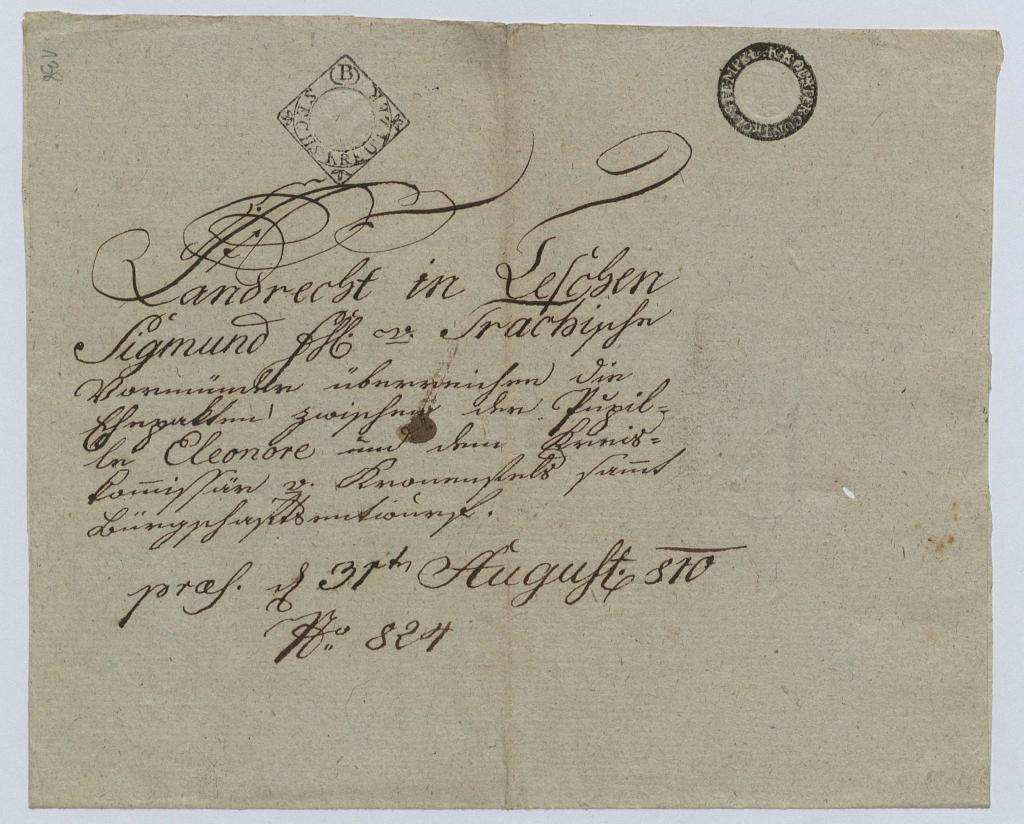 138
B
SECHS KREUTZER
Landrecht in Teschen
Sigmund Fhl. v. Trachische
Vormünder überreichen die
Ehepakten zwischen der Pupil=
le Eleonore und dem Kreis=
kom̄issär v. Kronenfels sam̄t
Bürgschaftsentwurf.
præs. d 31t August. 810
No. 824